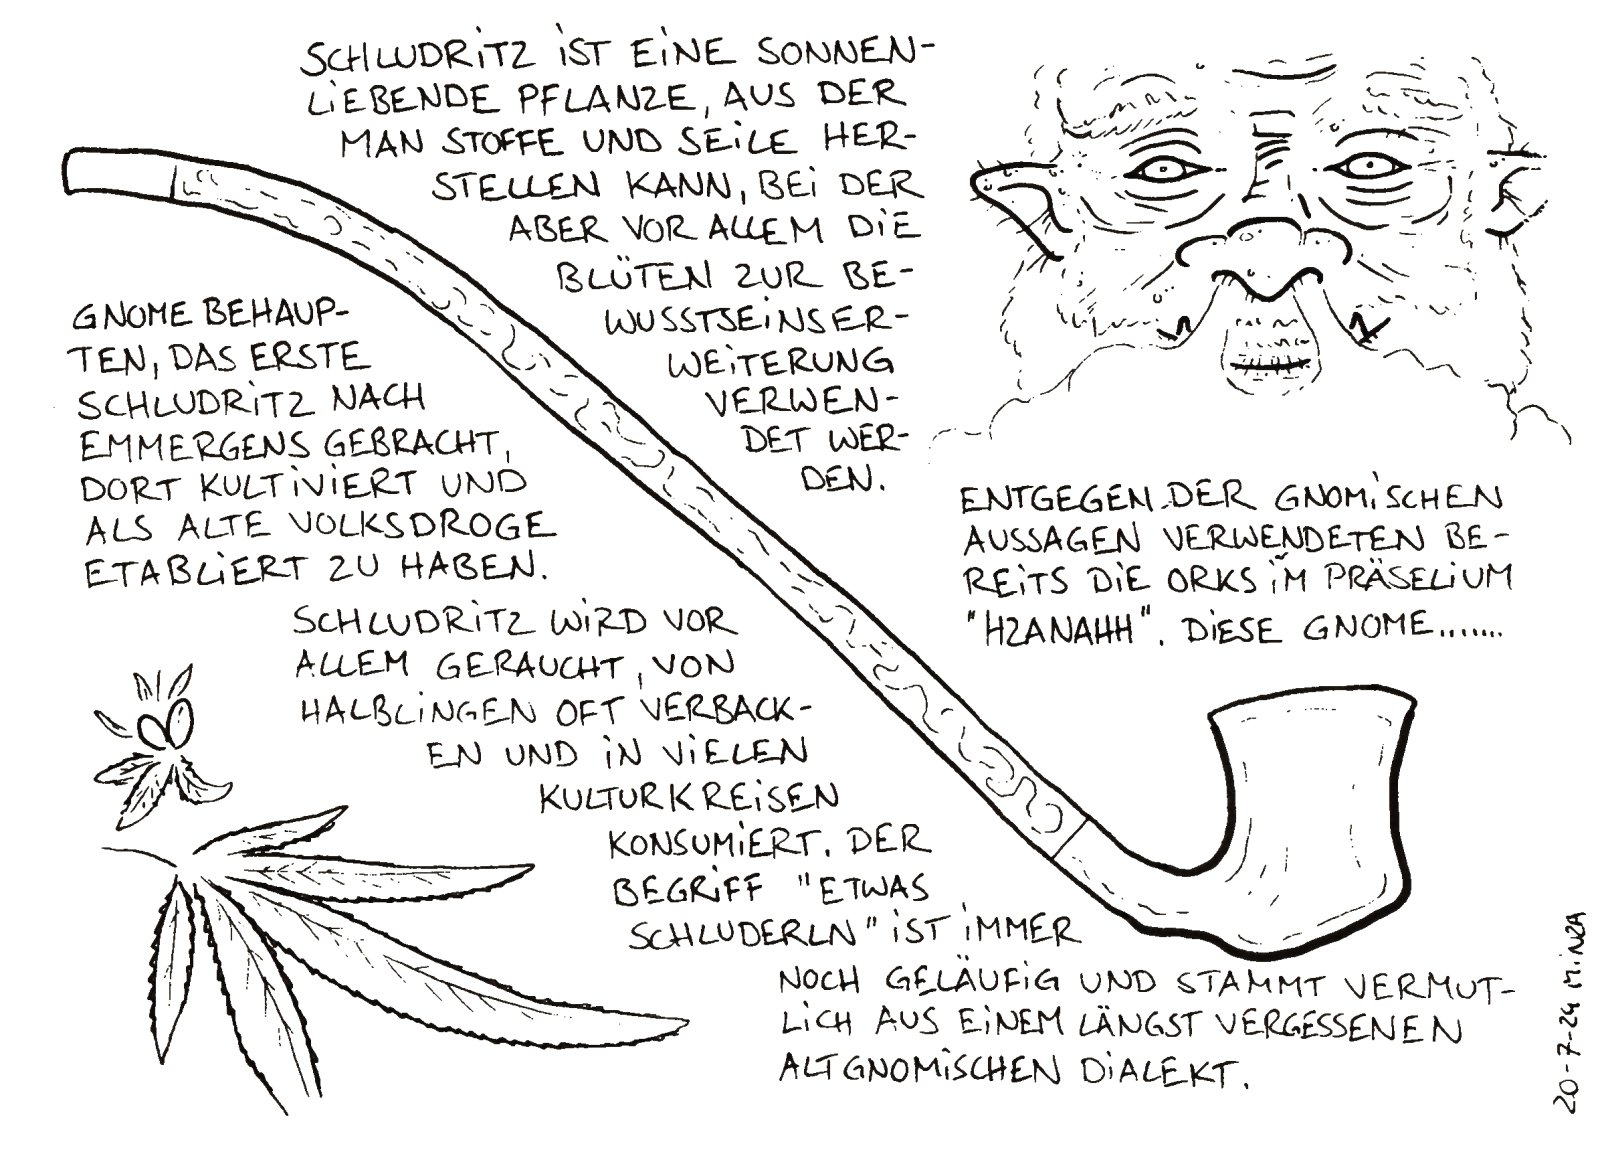 SCHLUDRITZ IST EINE SONNEN-
LIEBENDE PFLANZE, AUS DER
MAN STOFFE UND SEILE HER-
STELLEN KANN, BEI DER
ABER VOR ALLEM DIE
BLÜTEN ZUR BE-
WUSSTSEINSER-
WEITERUNG
VERWEN-
DET WER-
DEN.
GNOME BEHAUP-
TEN, DAS ERSTE
SCHLUDRITZ NACH
EMMERGENS GEBRACHT,
DORT KULTIVIERT UND
ALS ALTE VOLKSDROGE
ETABLIERT ZU HABEN.
ENTGEGEN DER GNOMISCHEN
AUSSAGEN VERWENDETEN BE-
REITS DIE ORKS IM PRÄSELIUM
"HZANAHH". DIESE GNOME.......
SCHLUDRITZ WIRD VOR
ALLEM GERAUCHT, VON
HALBLINGEN OFT VERBACK-
EN UND IN VIELEN
KULTURKREISEN
KONSUMIERT. DER
BEGRIFF "ETWAS
SCHLUDERLN" IST IMMER
NOCH GELÄUFIG UND STAMMT VERMUT-
LICH AUS EINEM LÄNGST VERGESSENEN
ALTGNOMISCHEN DIALEKT.
20-7-24 MINZA